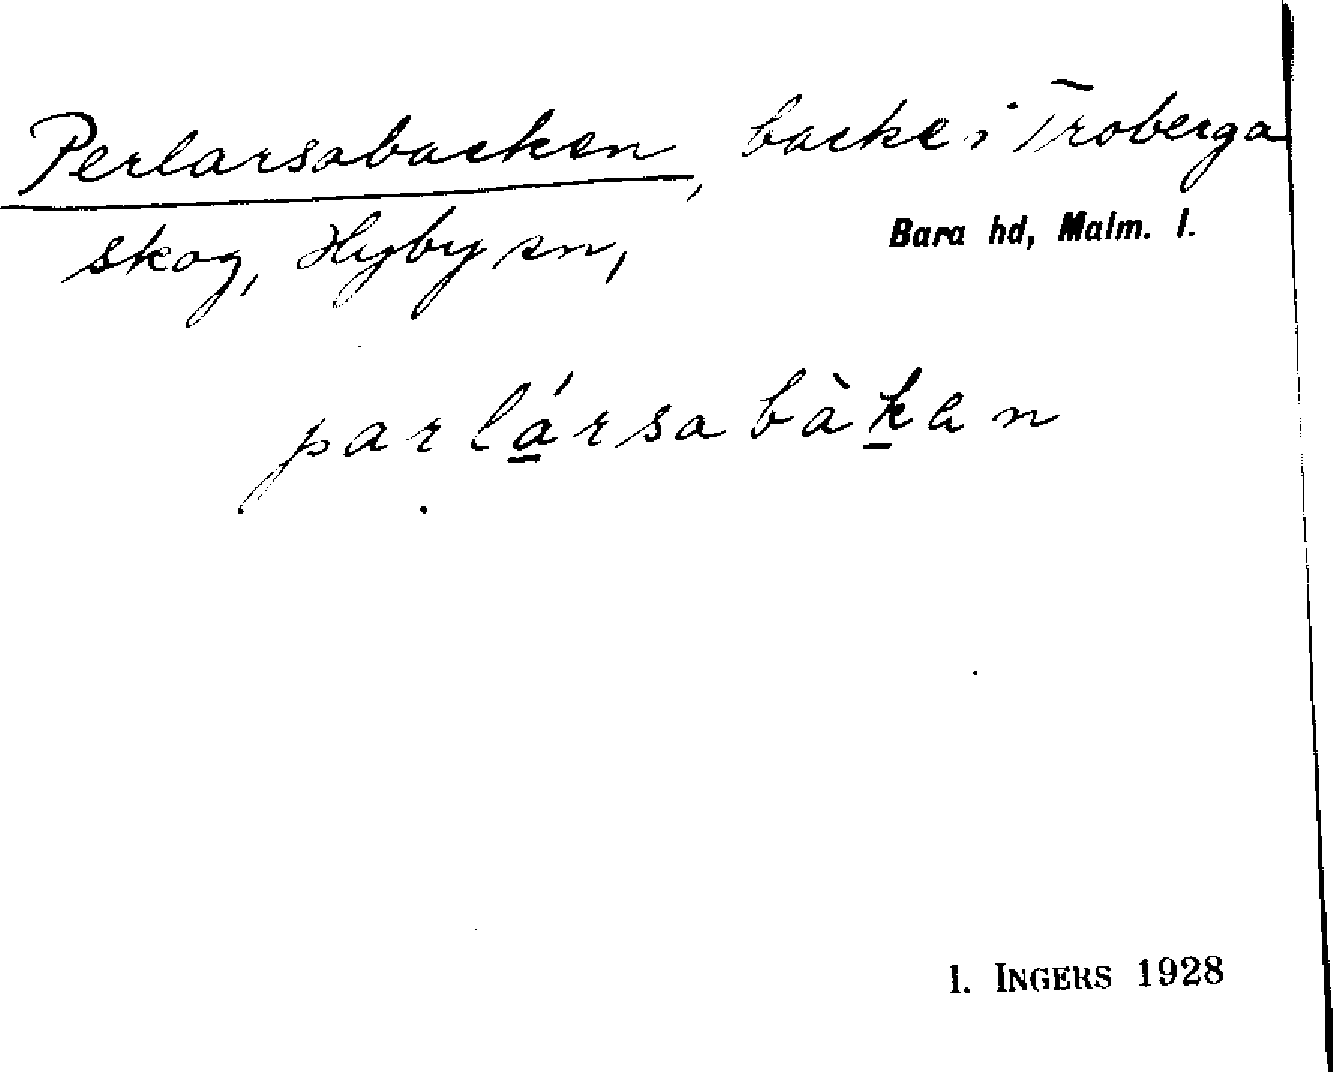 Perlarsabacken, backe i Troberga
skog, Hyby sn,
Bara hd, Malm. l.
parlársabàkan
I. INGERS 1928